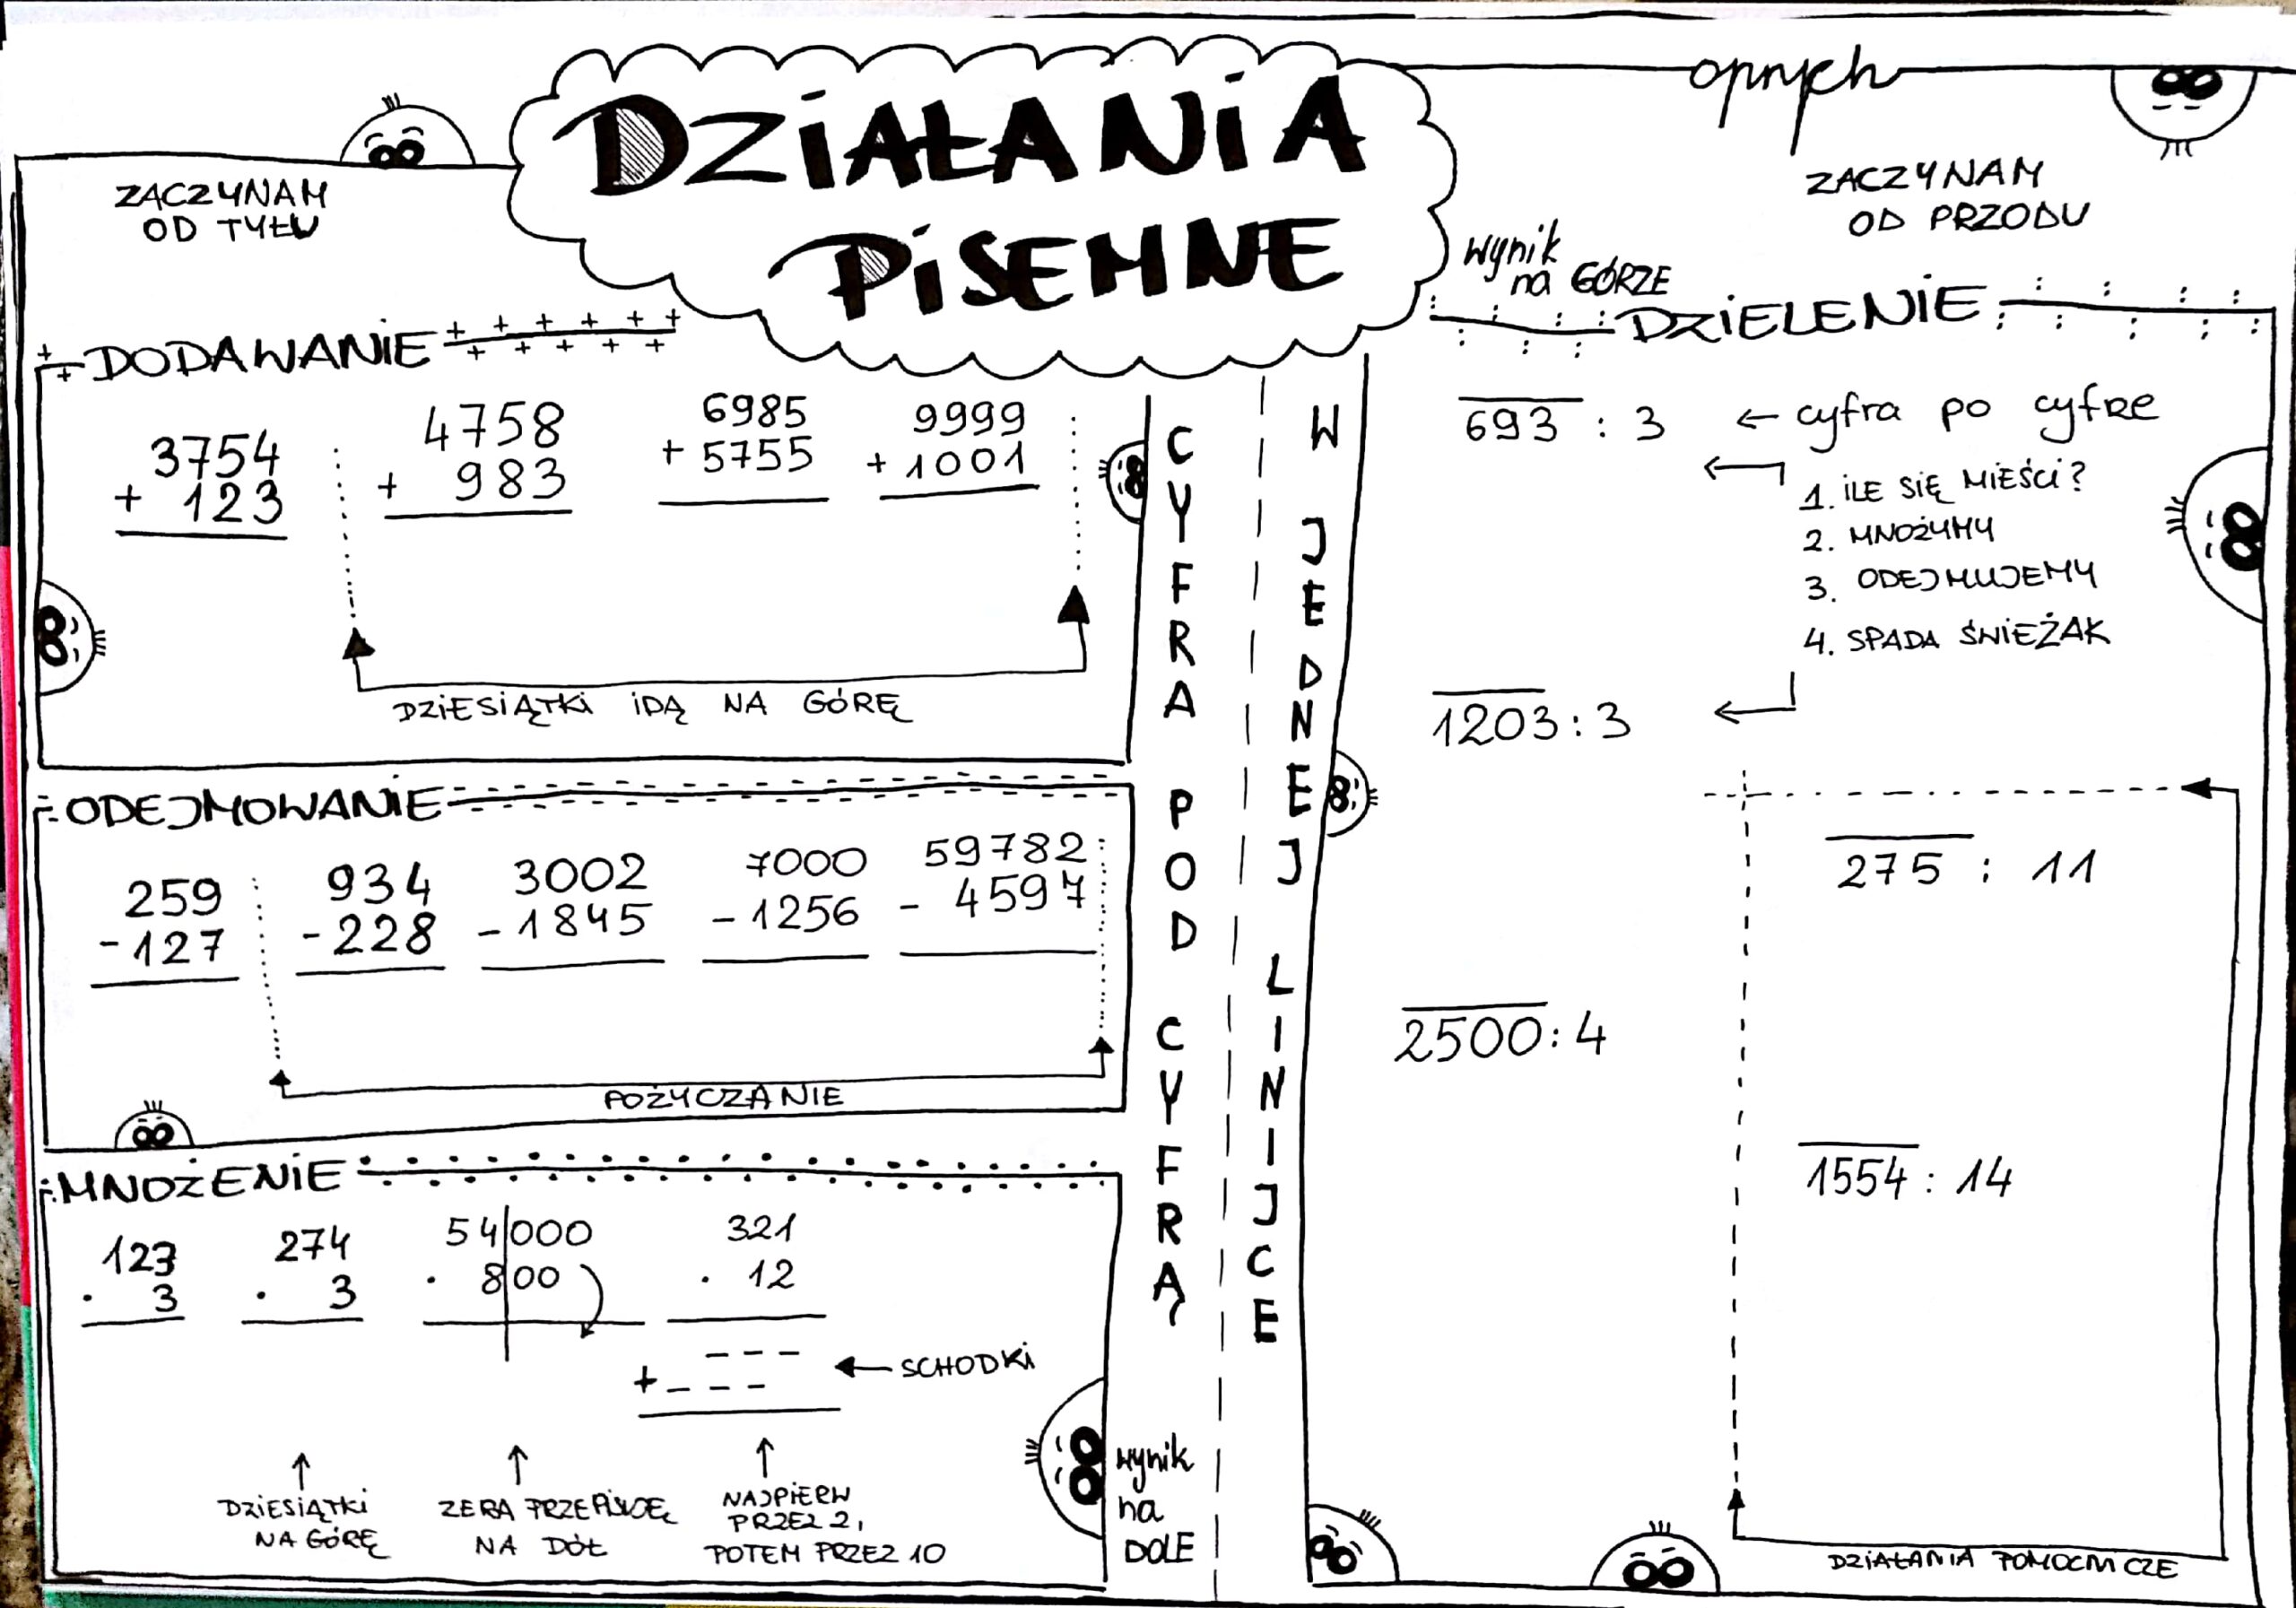 DZIAŁANIA
PISEMNE
opnych
ZACZYNAM
OD TYŁU
DODAWANIE
3754
+ 123
4758
+ 983
6985
+ 5755
9999
+ 1001
DZIESIĄTKI IDĄ NA GÓRĘ
ODEJMOWANIE
259
-127
934
-228
3002
-1845
7000
-1256
59782
- 4597
POŻYCZANIE
MNOŻENIE
123
· 3
274
· 3
54|000
· 8|00
321
· 12
_ _ _
+ _ _ _
← SCHODKI
DZIESIĄTKI
NA GÓRĘ
ZERA PRZEPISUJĘ
NA DÓŁ
NAJPIERW
PRZEZ 2,
POTEM PRZEZ 10
CYFRA POD CYFRĄ
wynik
na
DOLE
W JEDNEJ LINIJCE
ZACZYNAM
OD PRZODU
wynik
na GÓRZE
DZIELENIE
693 : 3 ← cyfra po cyfrze
1. ILE SIĘ MIEŚCI?
2. MNOŻYMY
3. ODEJMUJEMY
4. SPADA ŚWIEŻAK
1203 : 3
2500 : 4
275 : 11
1554 : 14
DZIAŁANIA POMOCNICZE